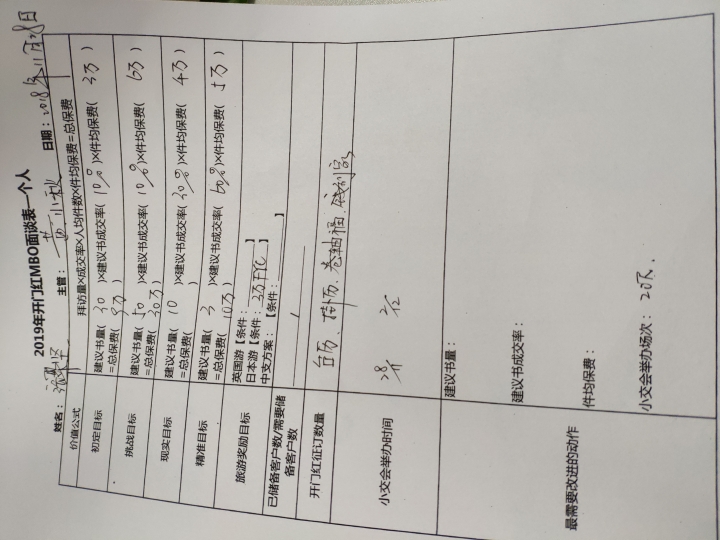 2019年开门红MBO面谈表—个人
姓名： 主管： 黄小秋 日期：2018年11月28日
价值公式 拜访量×成交率×人均件数×件均保费=总保费
初定目标 建议书量( 30 )×建议书成交率( 10% )×件均保费( 3万 )
=总保费( 9万 )
挑战目标 建议书量( 50 )×建议书成交率( 10% )×件均保费( 6万 )
=总保费( 30万 )
现实目标 建议书量( 10 )×建议书成交率( 20% )×件均保费( 4万 )
=总保费( )
精准目标 建议书量( 3 )×建议书成交率( 60% )×件均保费( 5万 )
=总保费( 10万 )
旅游奖励目标 英国游【条件： 】
日本游【条件：3万FYC 】
中支方案： 【条件： 】
已储备客户数/需要储
备客户数 /
开门红征订数量 台历、 卷轴福、
小交会举办时间
最需要改进的动作 建议书量：
建议书成交率：
件均保费：
小交会举办场次： 20次.